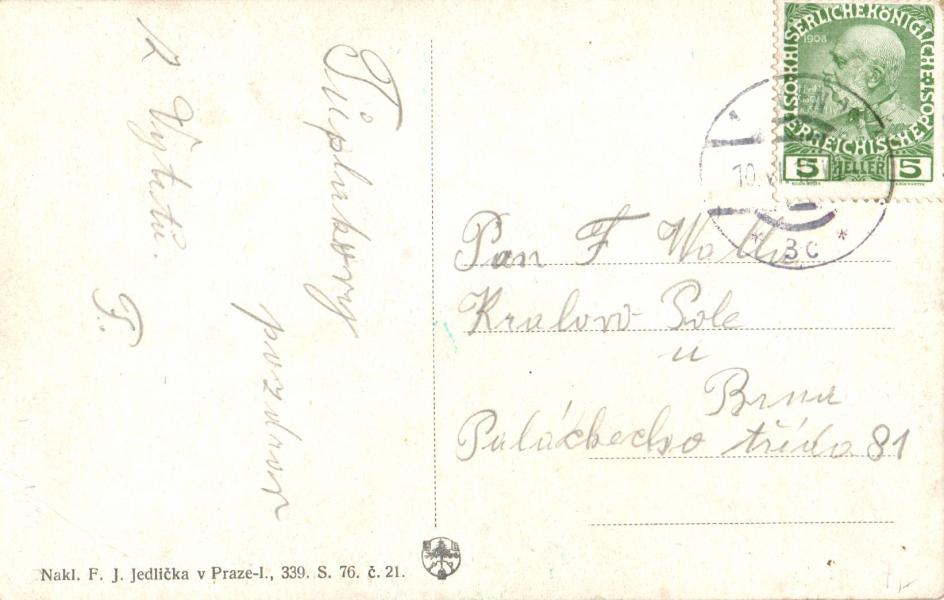 Z Výletu.
pozdrav
F.
KAISERLICHE KÖNIGLICHE
ÖSTERREICHISCHE POST
1908
5 HELLER 5
10
* 3c *
Pan F
Kralovo Pole
u
Brna
Paláckeho třída 81
Nakl. F. J. Jedlička v Praze-I., 339. S. 76. č. 21.